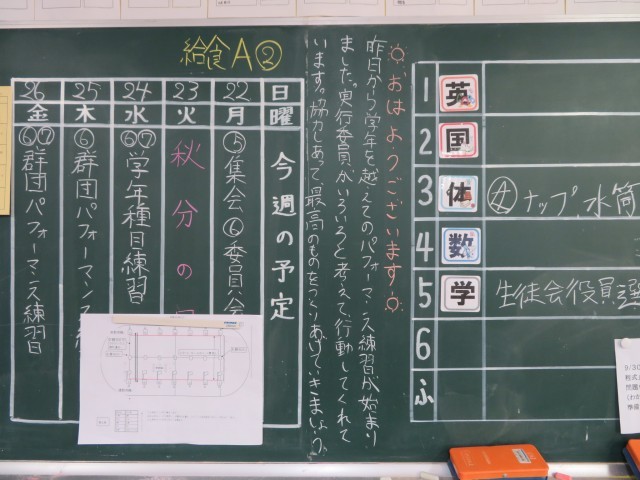 給食A②
日 曜 今週の予定
22 月 ⑤集会⑥委員会
23 火 秋分の
24 水 ⑥⑦学年種目練習
25 木 ⑥群団パフォーマンス
26 金 ⑥⑦群団パフォーマンス練習
おはようございます
昨日から学年を越えてのパフォーマンス練習が始まり
ました。実行委員がいろいろと考えて、行動してくれて
います。協力しあって、最高のものをつくりあげていきましょう。
1 英
2 国
3 体 ナップ、水筒
4 数
5 学 生徒会役員選
6
ふ
9/30